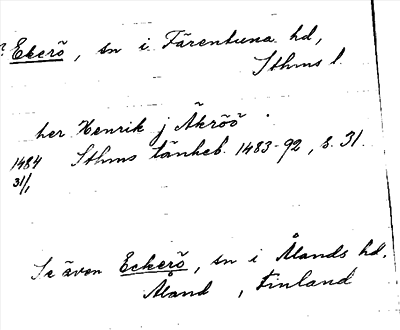 ? Ekerö, sn i Färentuna hd,
Sthms l.
her Henrik j Äkröö
1484 Sthms tänkeb. 1483-92, s. 31.
31/1
Se även Eckerö, sn i Ålands hd.
Åland, Finland